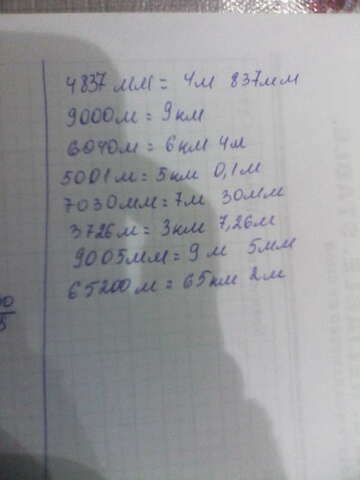 4837 мм = 4м 837мм
9000м = 9км
6040м = 6км 4м
5001м = 5км 0,1м
7030мм = 7м 30мм
3726м = 3км 7,26м
9005мм = 9м 5мм
65200м = 65км 2м